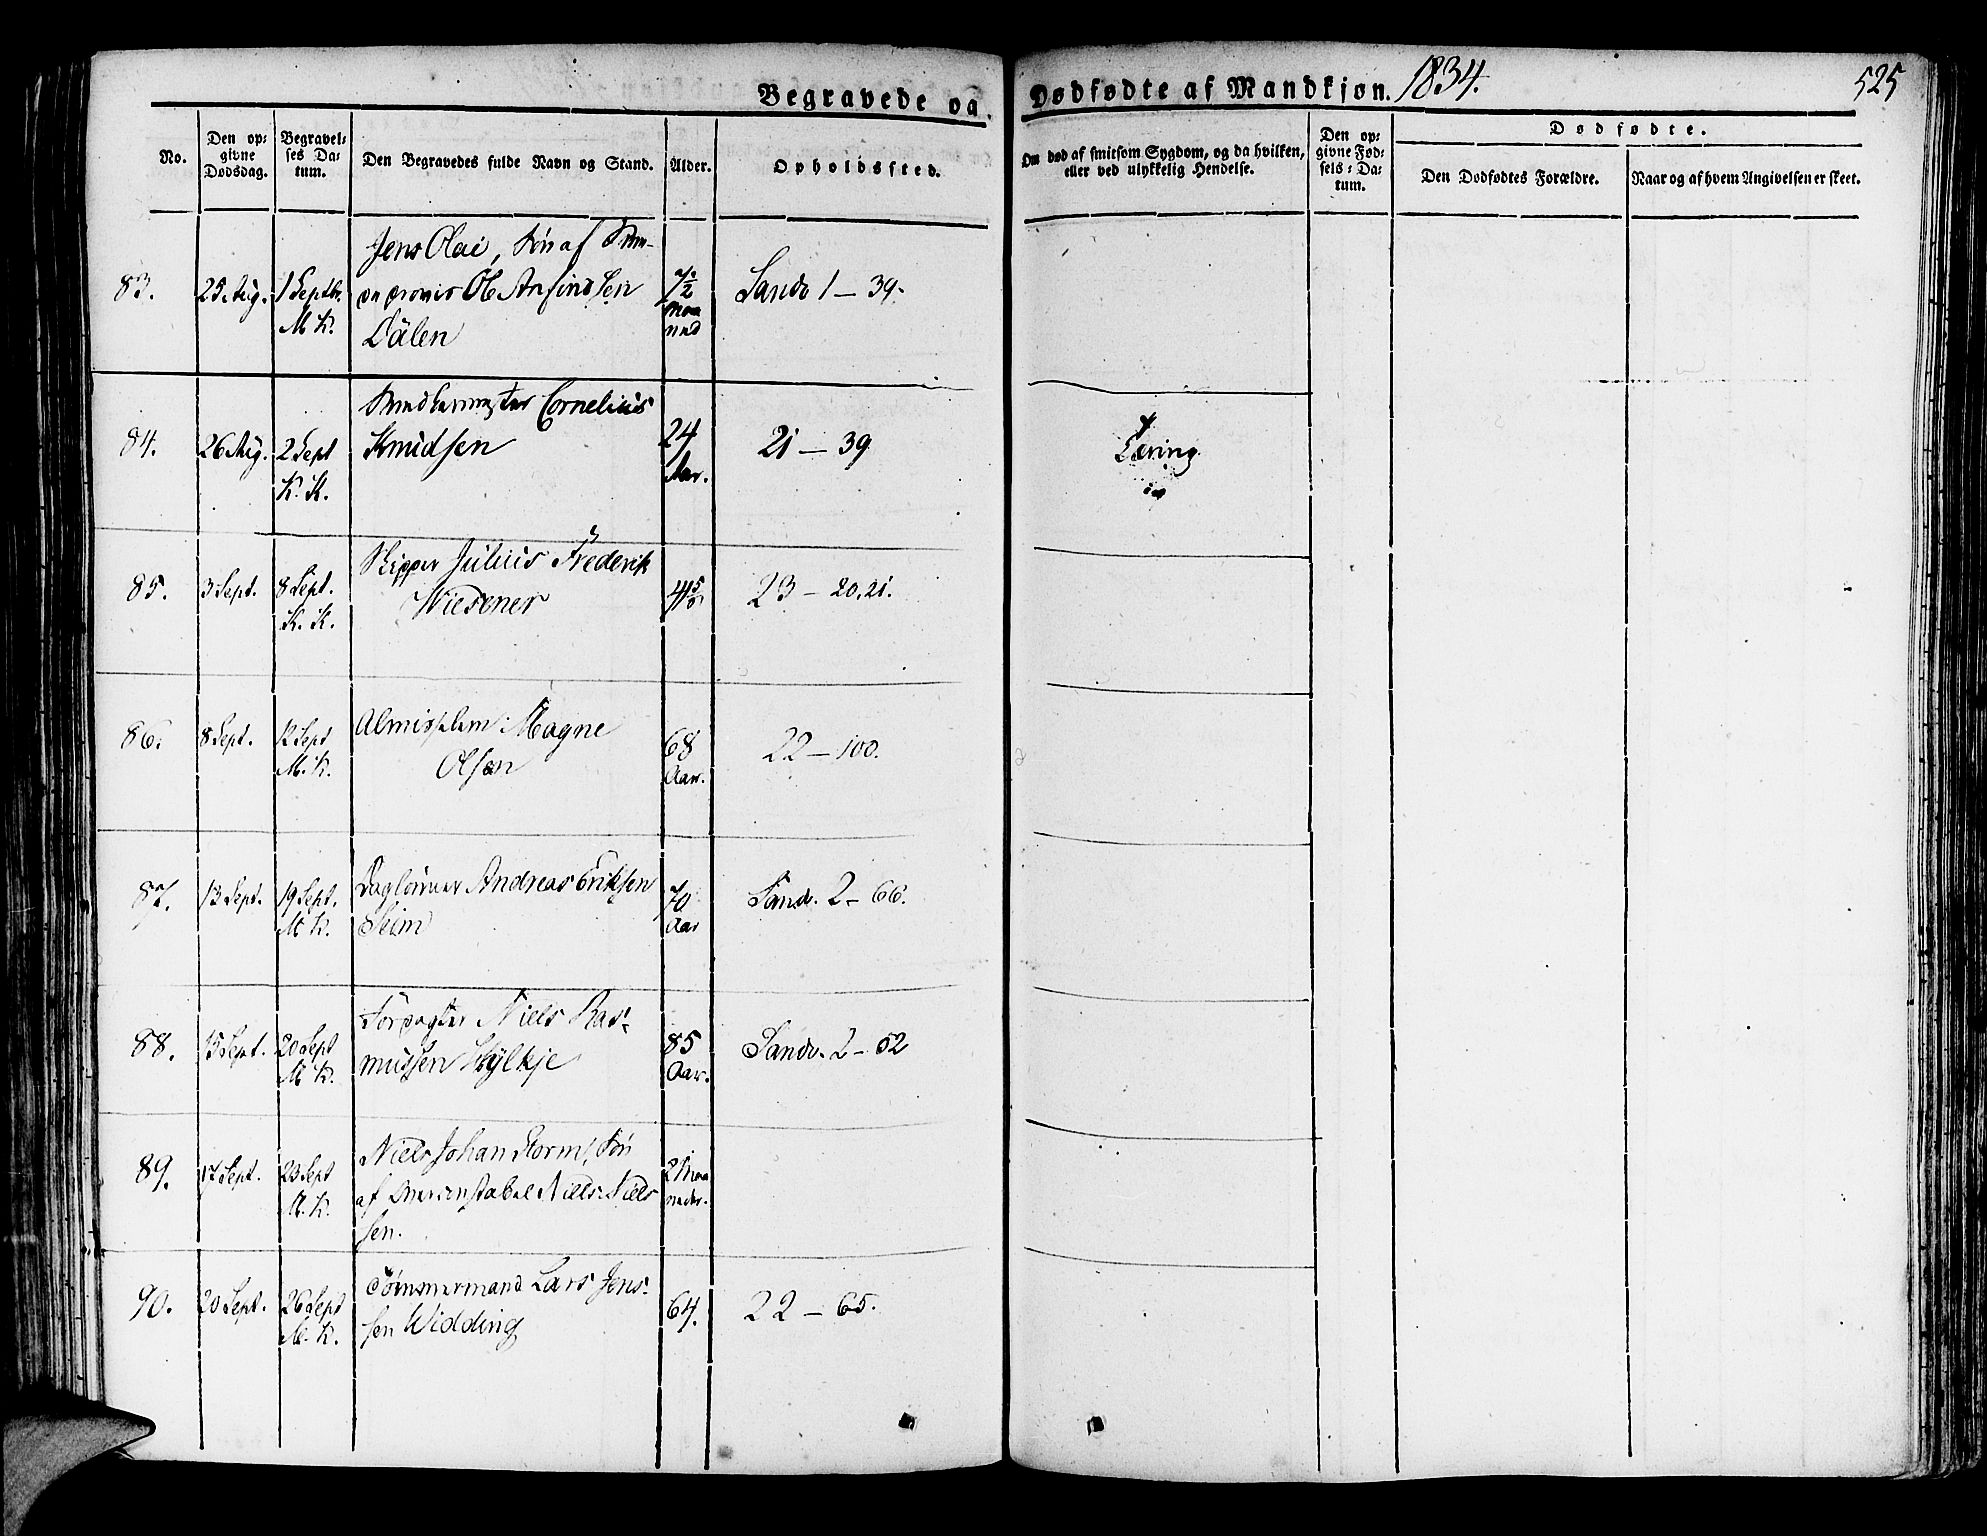 Begravede og Dødfødte af Mandkjøn. 1834. 525
No.
Den opgivne Dødsdag.
Begravelses Datum.
Den Begravedes fulde Navn og Stand.
Alder.
Opholdssted.
Om død af smitsom Sygdom, og da hvilken,
eller ved ulykkelig Hendelse.
Den opgivne Fødsels-Datum.
Dødfødte.
Den Dødfødtes Forældre.
Naar og af hvem Angivelsen er skeet.
83. 25 Aug. 1 Septbr. M. K.
Jens Olai, Søn af
Ole Ansindsen
Dalen
7/2 Maaned
Sandv 1 — 39.
84. 26 Aug. 2 Sept K. K.
Cornelius
Knudsen
24 Aar.
21 — 39
Tæring
85. 3 Sept. 8 Sept. K. K.
Skipper Julius Frederik
Wiesener
23 — 20.21.
86. 8 Sept. 12 Sept M. K.
Almisselem: Magne
Olsen
68 Aar.
22 — 100.
87. 13 Sept. 19 Sept. M. K.
Dagleiner Andreas Eriksen
Seim
70 Aar
Sandv. 2 — 66.
88. 15 Sept. 20 Sept M. K.
Forpagter Niels Ras-
mussen Kylkje
85 Aar.
Sandv. 2 — 52
89. 17 Sept. 23 Sept M. K.
Niels Johan Storm, Søn
af Niels Niels
sen.
2 Maaneder.
90. 20 Sept. 26 Sept M. K.
Tømmermand Lars Jens-
sen Widding
64.
22 — 65.